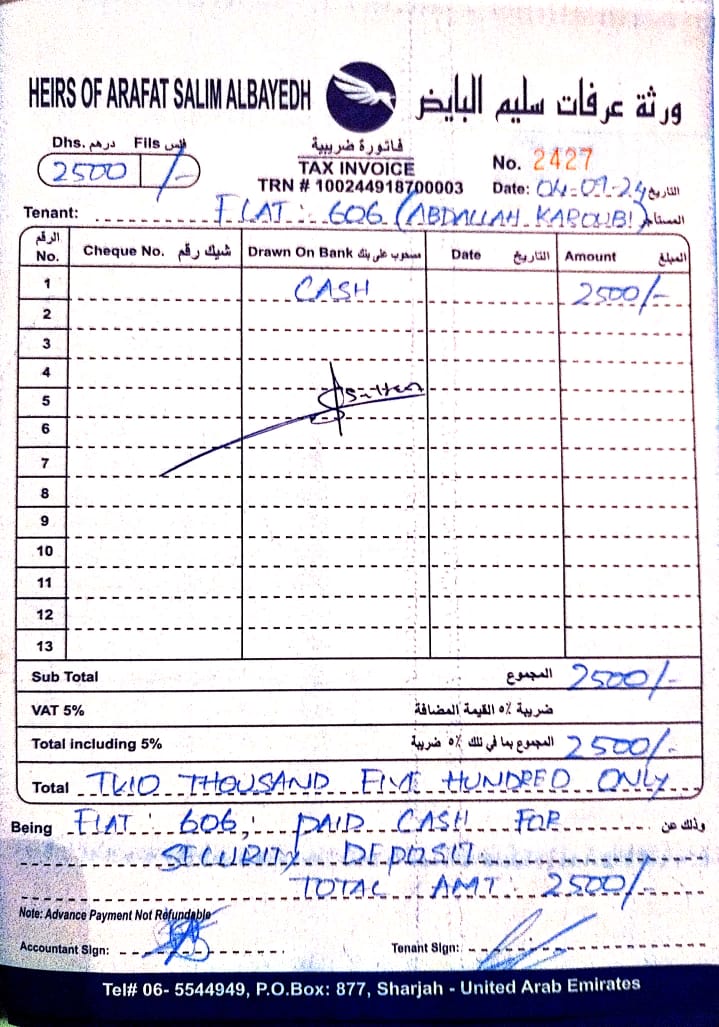 HEIRS OF ARAFAT SALIM ALBAYEDH ورثة عرفات سليم البايض
Dhs. درهم Fils فلس
2500 /-
فاتورة ضريبية
TAX INVOICE
TRN # 100244918700003
No. 2427
Date: 04-09-24 التاريخ
Tenant: FLAT: 606 (ABDALLAH KAROUBI) المستأجر
الرقم No. Cheque No. شيك رقم Drawn On Bank مسحوب على بنك Date التاريخ Amount المبلغ
1 CASH 2500/-
2
3
4
5 Sultan
6
7
8
9
10
11
12
13
Sub Total المجموع 2500/-
VAT 5% ضريبة ٥% القيمة المضافة
Total including 5% المجموع بما في ذلك ٥% ضريبة 2500/-
Total TWO THOUSAND FIVE HUNDRED ONLY
Being FLAT: 606, PAID CASH FOR وذلك عن
SECURITY DEPOSIT.
TOTAL AMT: 2500/-
Note: Advance Payment Not Refundable
Accountant Sign: Tenant Sign:
Tel# 06- 5544949, P.O.Box: 877, Sharjah - United Arab Emirates